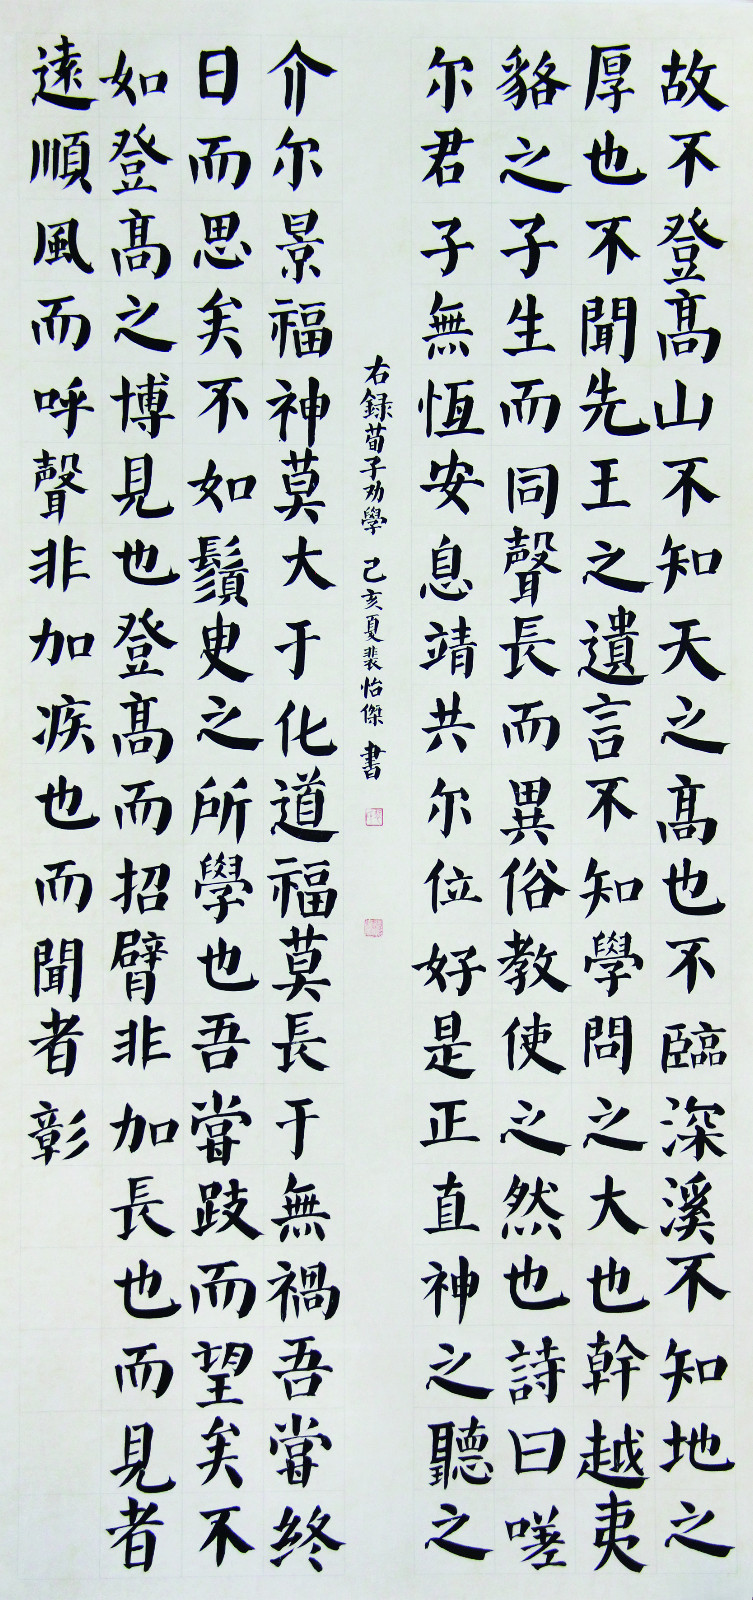 故不登髙山不知天之髙也不臨深溪不知地之
厚也不聞先王之遺言不知學問之大也幹越夷
貉之子生而同聲長而異俗教使之然也詩曰嗟
尔君子無恆安息靖共尔位好是正直神之聽之
介尔景福神莫大于化道福莫長于無禍吾嘗終
日而思矣不如鬚臾之所學也吾嘗跂而望矣不
如登髙之博見也登髙而招臂非加長也而見者
遠順風而呼聲非加疾也而聞者彰
右録荀子劝學 己亥夏裴怡傑 書